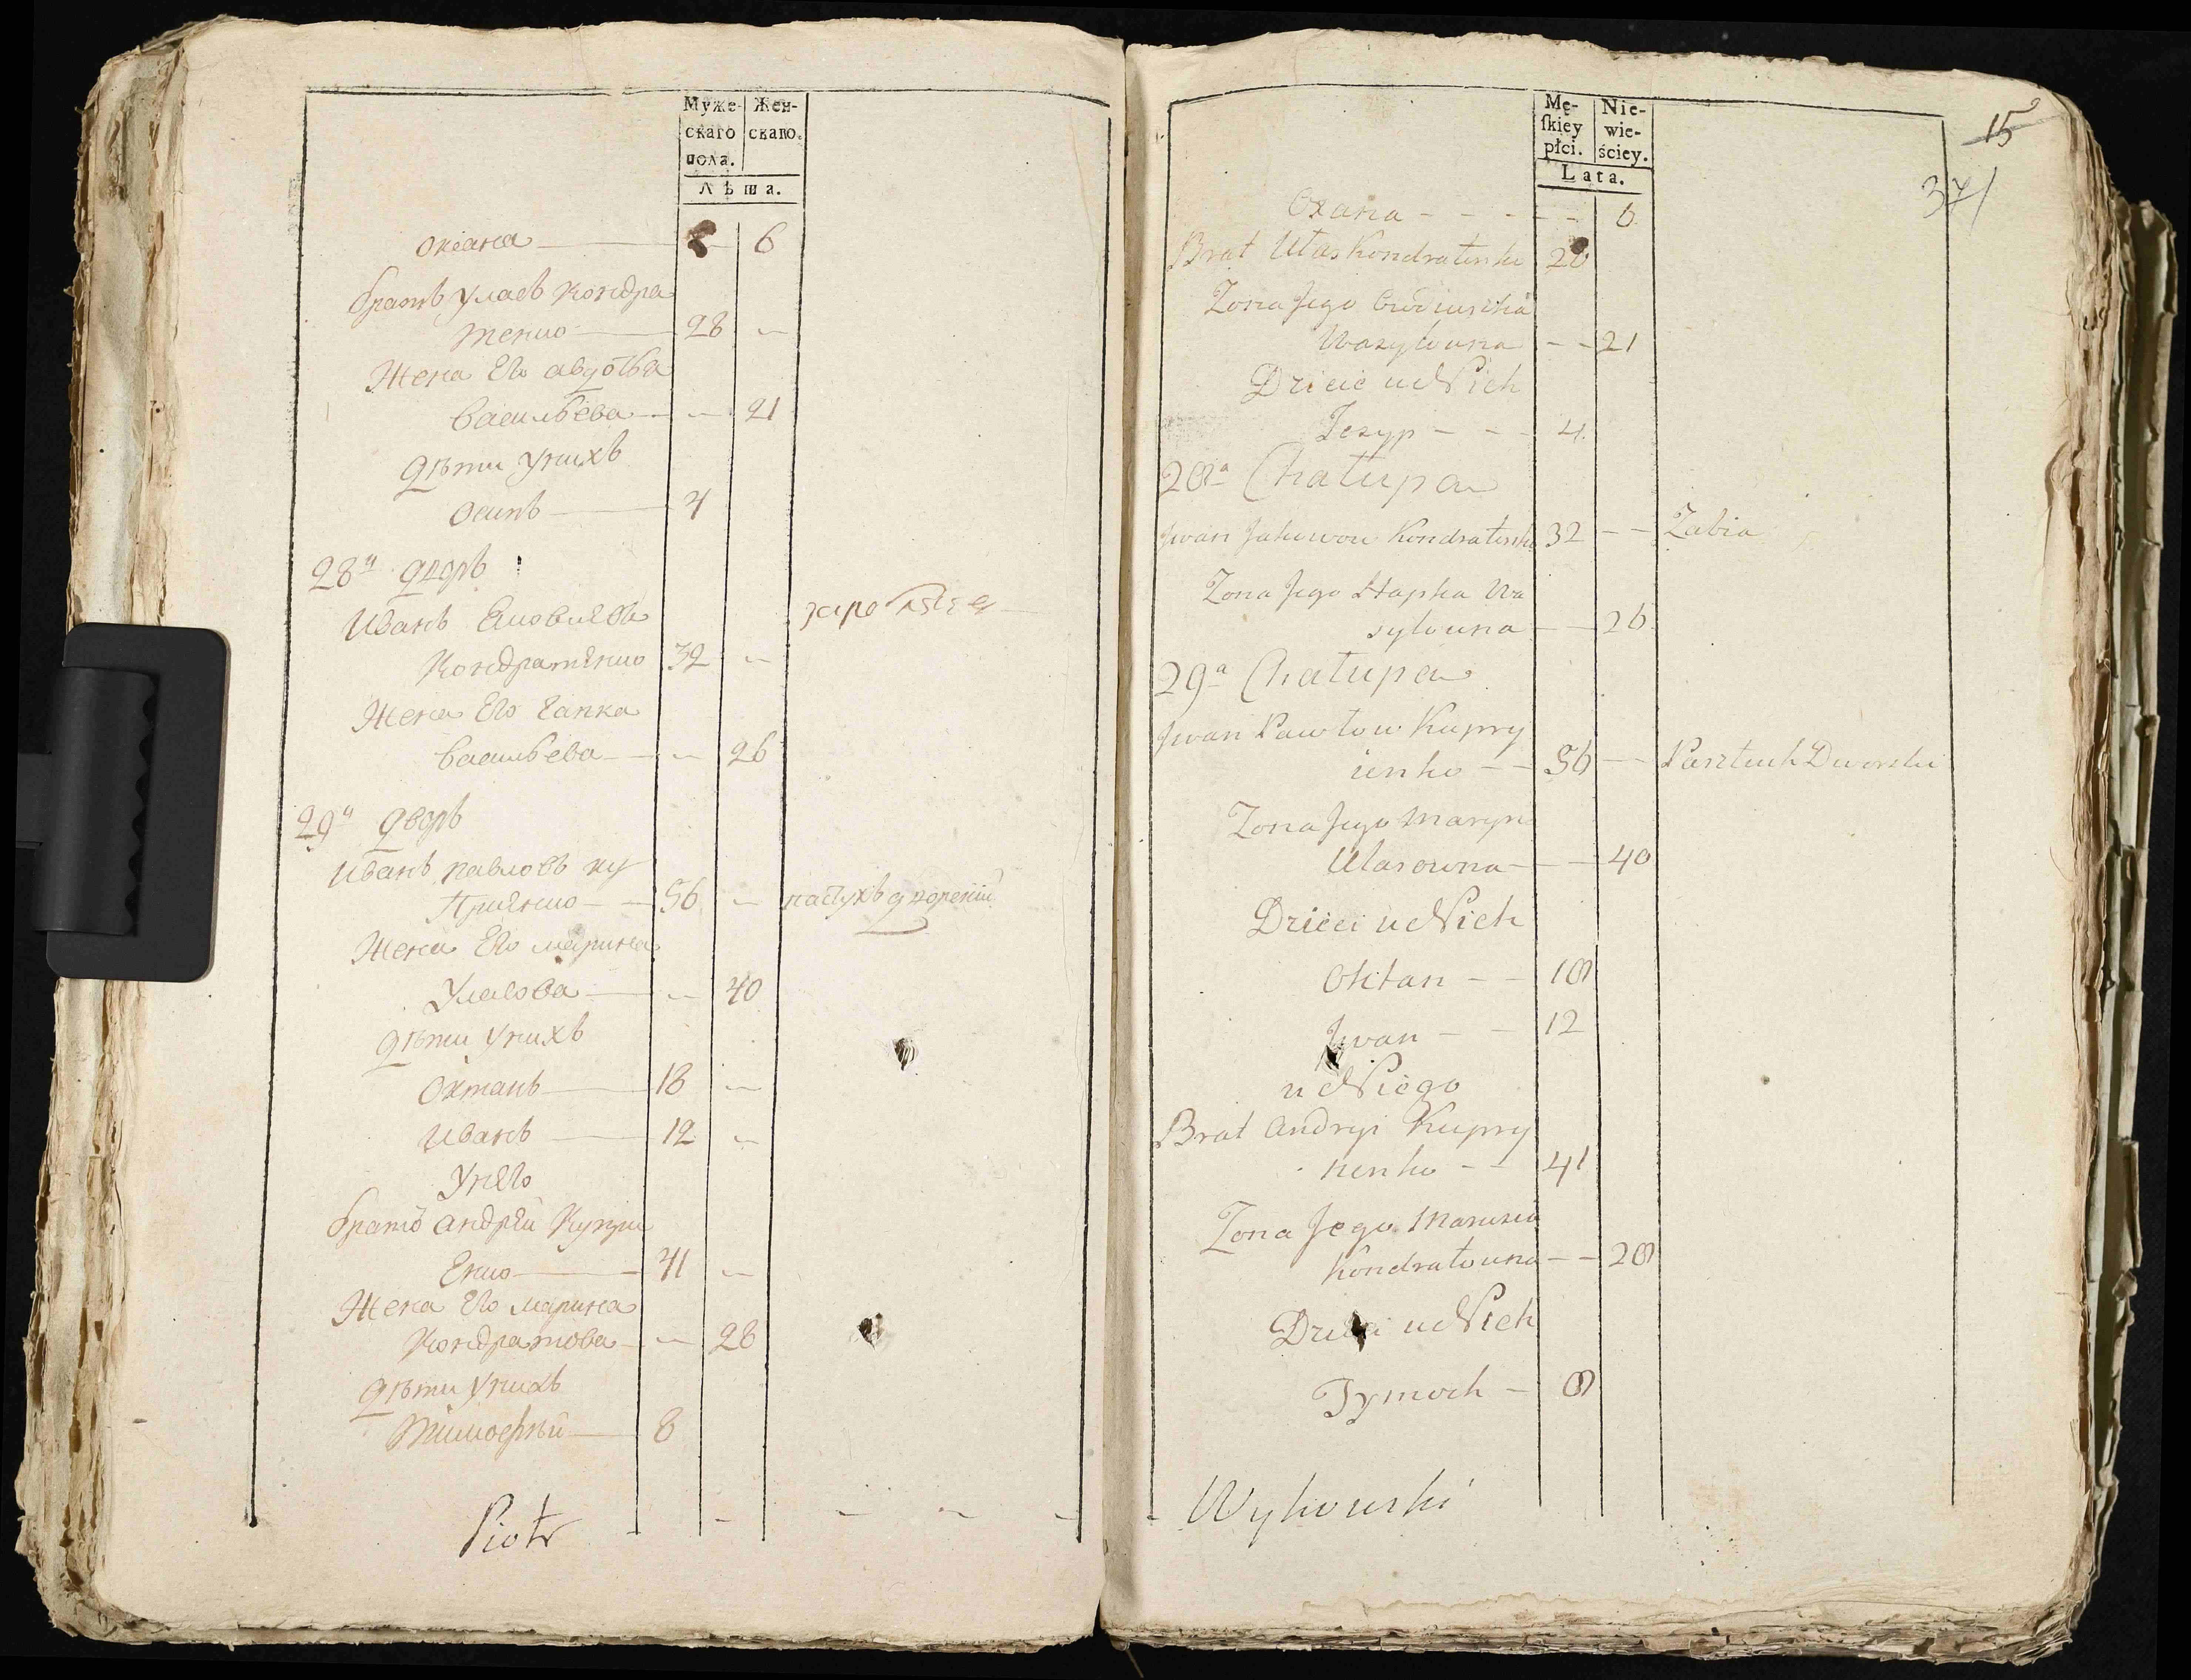 Муже-
скаго
пола.
Жен-
скаго.
Лѣта.
Оксана — — 6
братъ Уласъ Кондра
тенко — 28 —
Жена Его авдотья
Васильева — — 21
дѣти у нихъ
Осипъ — 4
28й дворъ
Иванъ Яковлевъ
Кондратенко 32 —
Жена Его Гапка
Васильева — — 26
29й дворъ
Иванъ павловъ ку
Приенко — — 56 — пастухъ дворскій
Жена Его марина
Уласова — — 40
дѣти у нихъ
Охтанъ — 18 —
Иванъ — 12 —
У него
братъ андрей Купри
Енко — 41 —
Жена Его марина
Кондратова — — 28
дѣти у нихъ
Тимофей — 8
Piotr - - - - -
15
37
Mę-
ſkiey
płci.
Nie-
wie-
ściey.
Lata.
Oxana - - - - - 6
Brat Ułas Kondratenko 28
Zona Jego
Wasylowna - - 21
Dzieie u Nich
Jozyp - - - 4
28a Chałupa
Jwan Jakowow Kondratenko 32 - - Zabia
Zona Jego Hapka Wa
sylowna - - 26
29a Chałupa
Jwan Pawłow Kupry
ienko - - 56 - - Pasztuch Dworski
Zona Jego Maryn
Ułasowna - - - 40
Dzieci u Nich
Oktan - - 18
Jwan - - 12
u Niego
Brat Andryi Kupry
nenko - - 41
Zona Jego Marusia
Kondratowna - - 28
Dzieci u Nich
Tymoch - 8
- Wykowski